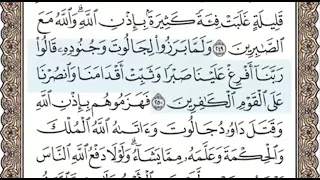 قَلِيلَةٍ غَلَبَتْ فِئَةً كَثِيرَةًۢ بِإِذْنِ ٱللَّهِۗ وَٱللَّهُ مَعَ
ٱلصَّٰبِرِينَ ٢٤٩ وَلَمَّا بَرَزُوا۟ لِجَالُوتَ وَجُنُودِهِۦ قَالُوا۟
رَبَّنَآ أَفْرِغْ عَلَيْنَا صَبْرًا وَثَبِّتْ أَقْدَامَنَا وَٱنصُرْنَا
عَلَى ٱلْقَوْمِ ٱلْكَٰفِرِينَ ٢٥٠ فَهَزَمُوهُم بِإِذْنِ ٱللَّهِ
وَقَتَلَ دَاوُۥدُ جَالُوتَ وَءَاتَىٰهُ ٱللَّهُ ٱلْمُلْكَ
وَٱلْحِكْمَةَ وَعَلَّمَهُۥ مِمَّا يَشَآءُۗ وَلَوْلَا دَفْعُ ٱللَّهِ ٱلنَّاسَ